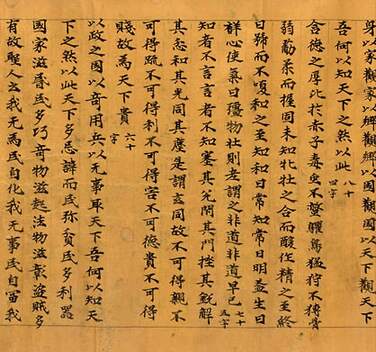 身以家觀家以鄉觀鄉以國觀國以天下觀天下
吾何以知天下之然以此 八十四字
含德之厚比於赤子毒虫不螫鳥猛狩不搏骨
弱筋柔而握固未知牝牡之合而酸作精之至終
日號而不嗄和之至知和日常知常日明益生日
祥心使氣日彊物壯則老謂之非道非道早已 七十五字
知者不言言者不知塞其兌閉其門挫其銳解
其忿和其光同其塵是謂玄同故不可得親不
可得疏不可得利不可得害不可德貴不可得
賤故為天下貴 六十字
以政之國以奇用兵以無事取天下吾何以知天
下之然以此天下多忌諱而民弥貧民多利器
國家滋昬民多巧奇物滋起法物滋彰盜賊多
有故聖人云我無為民自化我無事民自富我